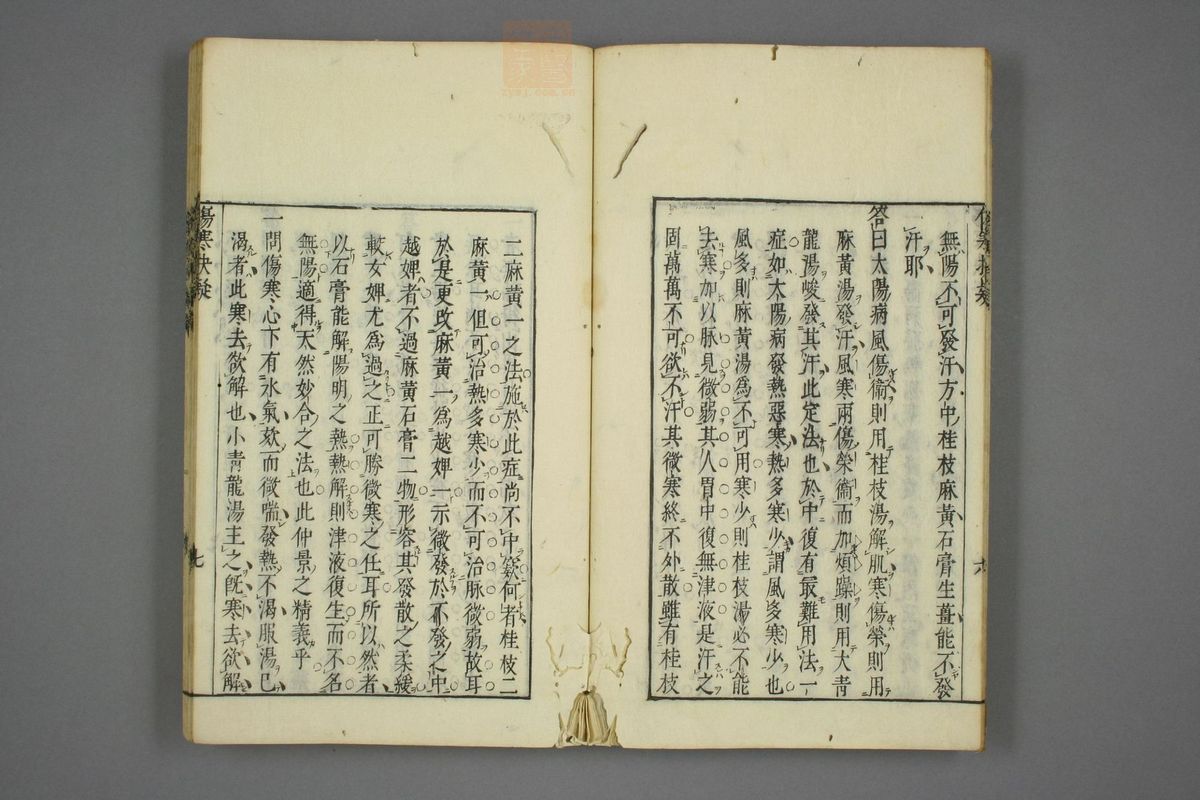 無陽不可發汗方中桂枝麻黃石膏生薑能不發
汗耶
答曰太陽病風傷衞則用桂枝湯解肌寒傷榮則用
麻黃湯發汗風寒兩傷榮衞而加煩躁則用大青
龍湯峻發其汗此定法也於中復有最難用法一
症如太陽病發熱惡寒熱多寒少謂風多寒少也
風多則麻黃湯為不可用寒少則桂枝湯必不能
去寒加以脉見微弱其人胃中復無津液是汗之
固萬萬不可欲不汗其微寒終不外散雖有桂枝
六
二麻黃一之法施於此症尚不中窾何者桂枝二
麻黃一但可治熱多寒少而不可治脉微弱故耳
於是更改麻黃一為越婢一示微發於不發之中
越婢者不過麻黃石膏二物形容其發散之柔緩
較女婢尤為過之正可勝微寒之任耳所以然者
以石膏能解陽明之熱熱解則津液復生而不名
無陽適得天然妙合之法也此仲景之精義乎
一問傷寒心下有水氣欬而微喘發熱不渴服湯已
渴者此寒去欲解也小青龍湯主之既寒去欲解
傷寒抉疑
七
zysj.com.cn